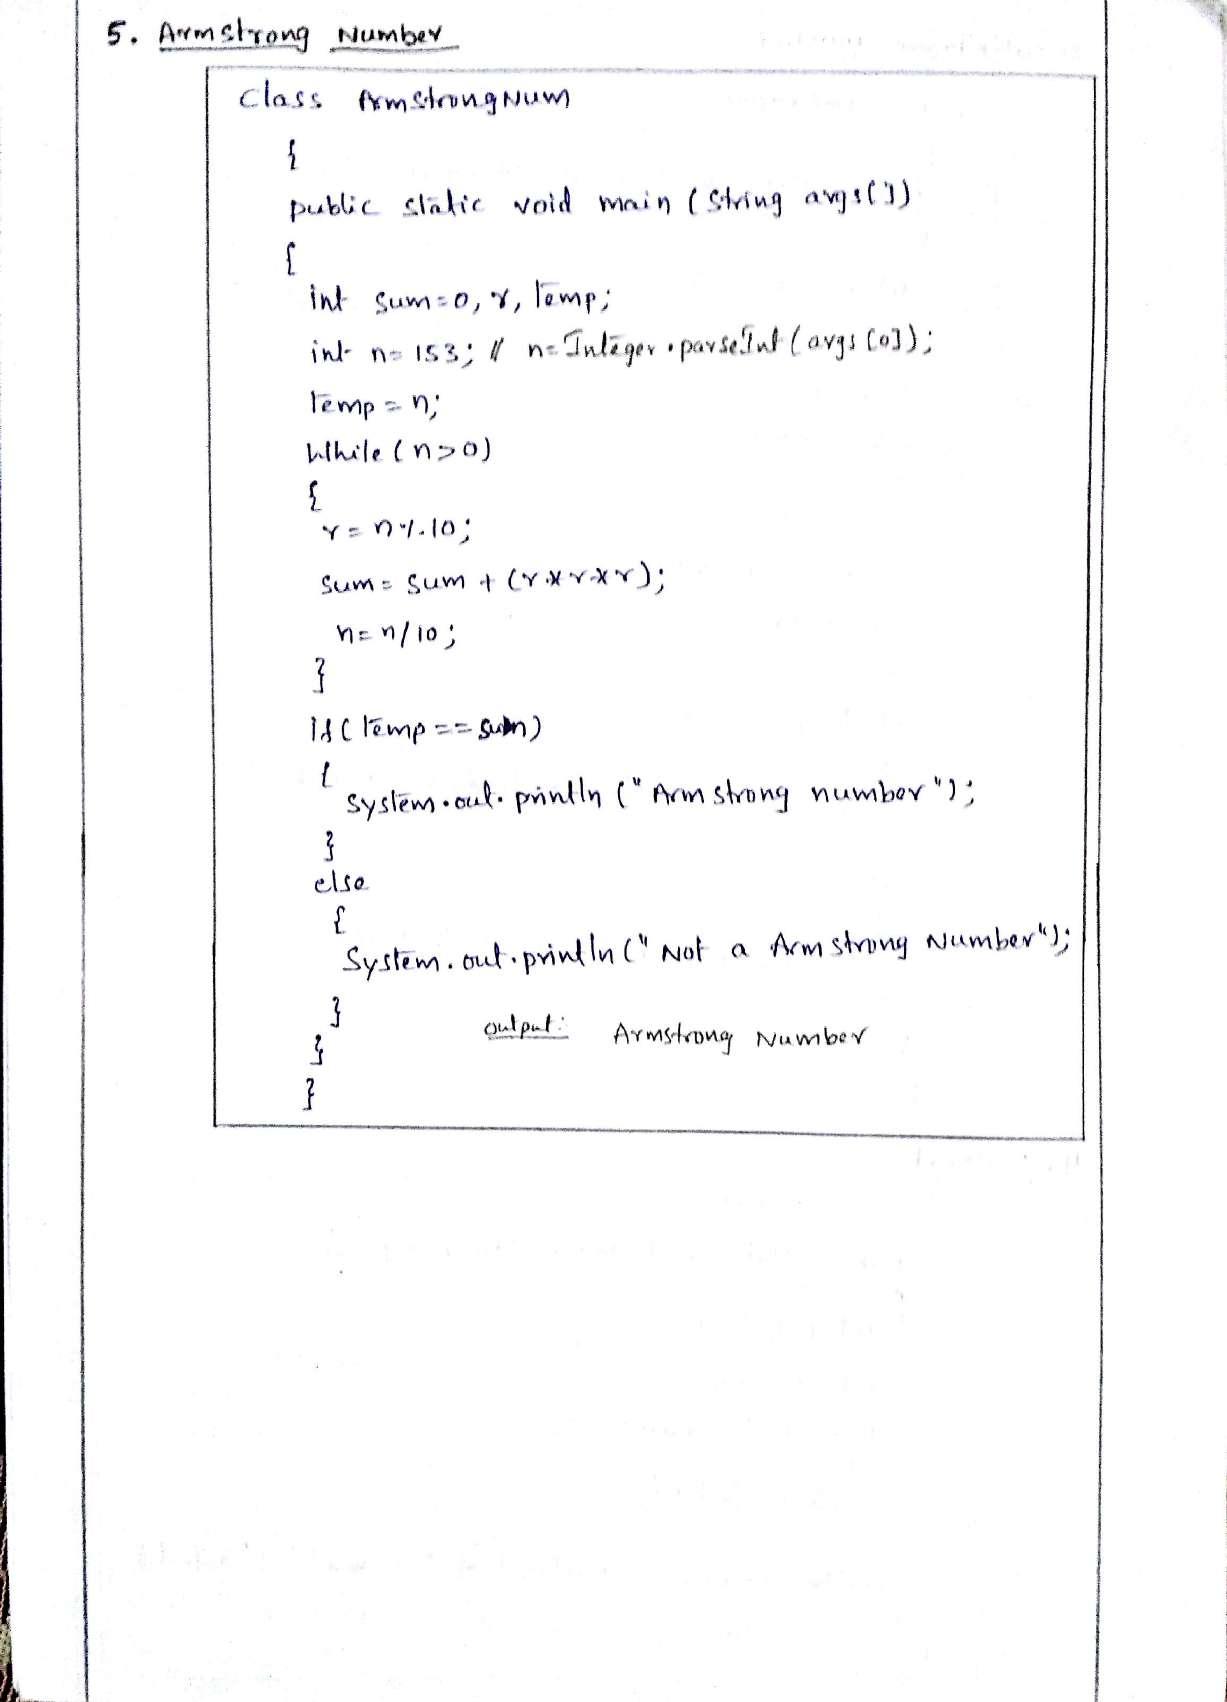 5. Armstrong Number
Class ArmstrongNum
{
public static void main (String args[])
{
int sum=0, r, temp;
int n=153; // n=Integer.parseInt(args[0]);
temp=n;
While(n>0)
{
r=n%10;
sum=sum+(r*r*r);
n=n/10;
}
if(temp==sum)
{
System.out.println("Armstrong number");
}
else
{
System.out.println("Not a Armstrong Number");
}
output: Armstrong Number
}
}